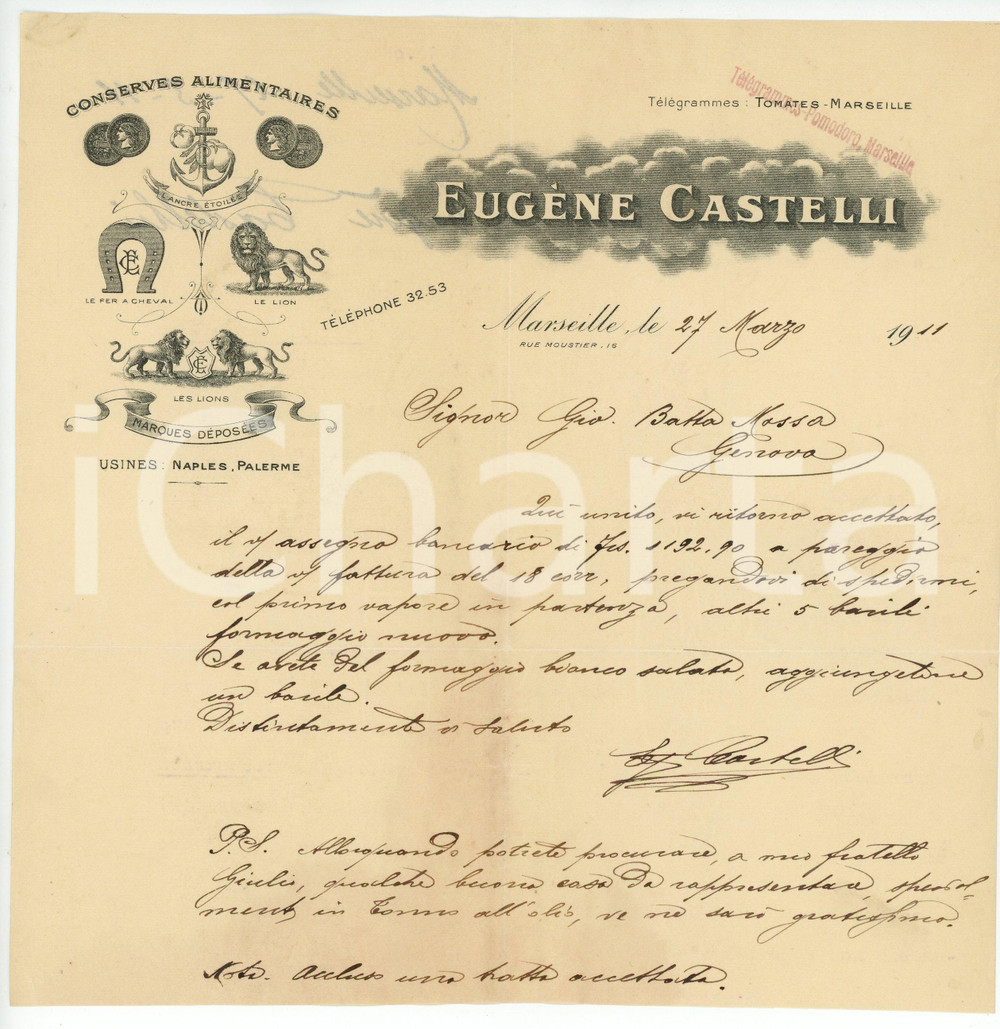 CONSERVES ALIMENTAIRES
L'ANCRE ÉTOILÉE
LE FER A CHEVAL
LE LION
LES LIONS
MARQUES DÉPOSÉES
USINES : NAPLES, PALERME
TÉLÉPHONE 32.53
Télégrammes : TOMATES-MARSEILLE
Télégrammes-Pomodoro, Marseille
EUGÈNE CASTELLI
Marseille, le 27 Marzo 1911
RUE MOUSTIER, 16
Signor Gio. Batta Mossa
Genova
Quì unito, vi ritorno accettato,
il v/ assegno bancario di Frs. 1192.90 a pareggio
della v/ fattura del 18 corr, pregandovi di spedirmi,
col primo vapore in partenza, altri 5 barili
formaggio nuovo.
Se avete del formaggio bianco salato, aggiungetene
un barile.
Distintamente vi saluto
Eug Castelli
P.S. Allorquando potrete procurare, a mio fratello
Giulio, qualche buona casa da rappresentare, special-
mente in Tonno all'olio, ve ne sarò gratissimo.
Nota. Accluso una tratta accettata.
iCharta